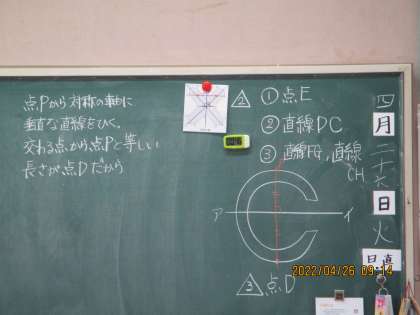 点Pから対称の軸に
垂直な直線をひく。
交わる点から点Pと等しい
長さが点Dだから
2 ①点E
②直線DC
③直線FG,直線
CH
ア
イ
3 点D
四月二十六日火
日直
2022/04/26 09:14